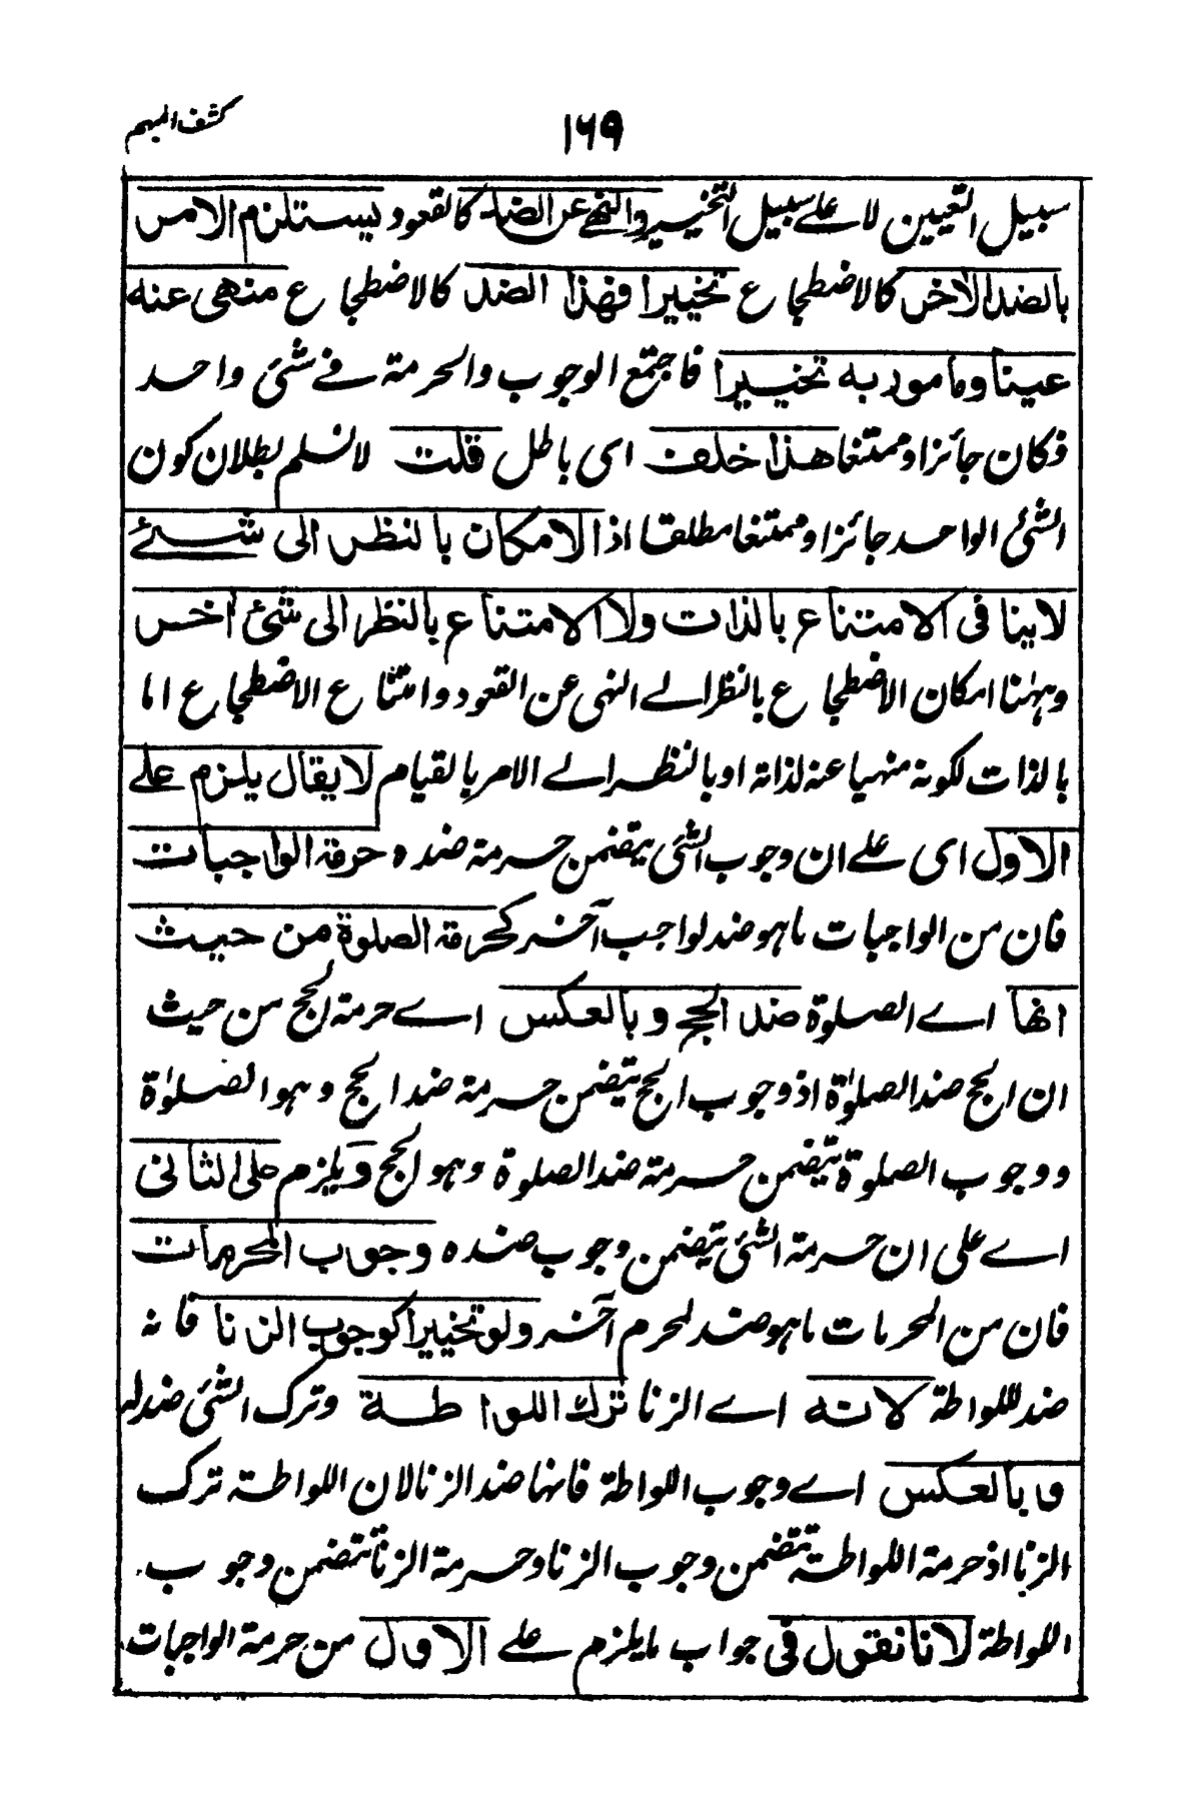 كشف المبهم
١٦٩
سبيل التعيين لا علے سبيل التخيير والنهے عن الضد كالقعود يستلزم الامر
بالضد الاخر كالاضطجاع تخييرا فهذا الضد كالاضطجاع منهى عنه
عينا ومامور به تخييرا فاجتمع الوجوب والحرمة فے شئ واحد
فكان جائزا وممتنعا هذا خلف اى باطل قلت لا نسلم بطلان كون
الشئ الواحد جائزا وممتنعا مطلقا اذ الامكان بالنظر الى شئے
لا ينافى الامتناع بالذات ولا الامتناع بالنظر الى شئ اخر
وههنا امكان الاضطجاع بالنظر الے النهى عن القعود وامتناع الاضطجاع اما
بالذات لكونه منهيا عنه لذاته او بالنظر الے الامر بالقيام لا يقال يلزم علے
الاول اى علے ان وجوب الشئ يتضمن حرمة ضده حرمة الواجبات
فان من الواجبات ما هو ضد لواجب آخر كحرمة الصلوة من حيث
انها اے الصلوة ضد الحج وبالعكس اے حرمة الحج من حيث
ان الحج ضد الصلوٰة اذ وجوب الحج يتضمن حرمة ضد الحج وهو الصلوٰة
ووجوب الصلوة يتضمن حرمة ضد الصلوة وهو الحج ويلزم على الثانى
اے على ان حرمة الشئ يتضمن وجوب ضده وجوب المحرمات
فان من المحرمات ما هو ضد لمحرم آخر ولو تخييرا كوجوب الزنا فانه
ضد للواطة لانه اے الزنا ترك اللواطة وترك الشئ ضد له
وبالعكس اے وجوب اللواطة فانها ضد الزنا لان اللواطة ترك
الزنا اذ حرمة اللواطة تتضمن وجوب الزنا وحرمة الزنا تتضمن وجوب
اللواطة لانا نقول فى جواب ما يلزم علے الاول من حرمة الواجبات